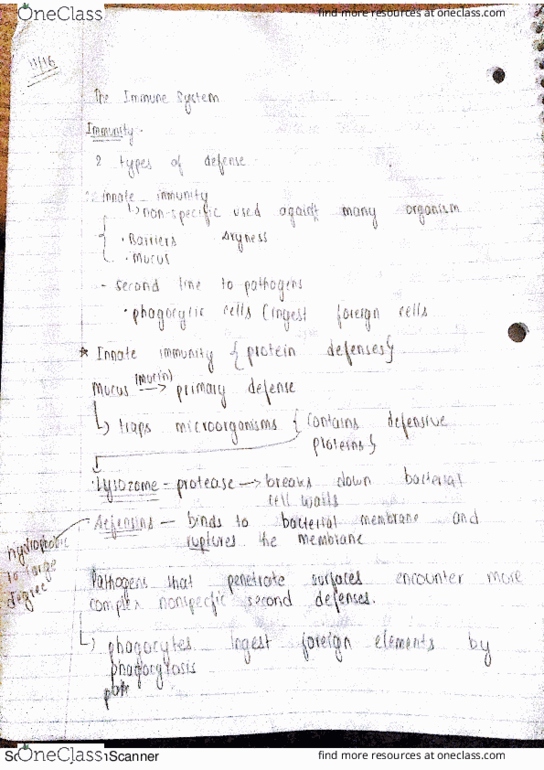 OneClass find more resources at oneclass.com
11/16
The Immune System
Immunity -
2 types of defense
innate immunity
↳ non-specific used against many organism
· Barriers Dryness
· Mucus
- second line to pathogens
· phagocytic cells (ingest foreign cells
* Innate immunity {protein defenses}
Mucus (mucin) → primary defense
↳ traps microorganisms {contains defensive
proteins}
· Lysozome - protease → breaks down bacterial
cell walls
· Defensins - binds to bacterial membrane and
ruptures the membrane
hydrophobic
to large
degree
Pathogens that penetrate surfaces encounter more
complex nonspecific second defenses.
↳ phagocytes ingest foreign elements by
phagocytosis
OneClass Scanner find more resources at oneclass.com